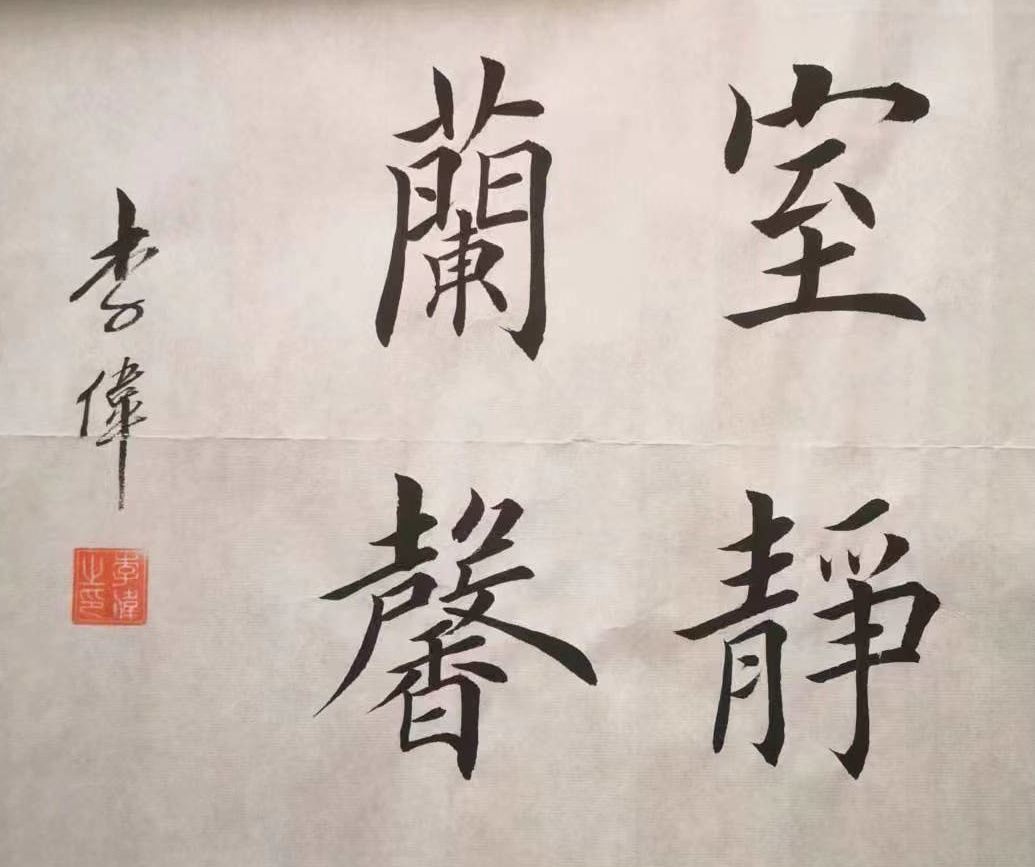 室靜
蘭馨
李偉
李偉之印